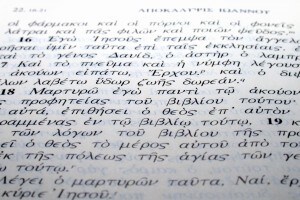 22. 16-21 ΑΠΟΚΑΛΥΨΙΣ ΙΩΑΝΝΟΥ
οἱ φάρμακοι καὶ οἱ πόρνοι καὶ οἱ φονεῖς
λάτραι καὶ πᾶς φιλῶν καὶ ποιῶν ψεῦδος.
16 Ἐγὼ Ἰησοῦς ἔπεμψα τὸν ἄγγελ
ρῆσαι ὑμῖν ταῦτα ἐπὶ ταῖς ἐκκλησίαις.
καὶ τὸ γένος Δαυίδ, ὁ ἀστὴρ ὁ λαμπρ
Καὶ τὸ πνεῦμα καὶ ἡ νύμφη λέγουσ
ἀκούων εἰπάτω, Ἔρχου. καὶ ὁ διψ
θέλων λαβέτω ὕδωρ ζωῆς δωρεάν.
18 Μαρτυρῶ ἐγὼ παντὶ τῷ ἀκούον
προφητείας τοῦ βιβλίου τούτου·
αὐτά, ἐπιθήσει ὁ θεὸς ἐπ' αὐτὸν
ραμμένας ἐν τῷ βιβλίῳ τούτῳ, 19 κ
τῶν λόγων τοῦ βιβλίου τῆς πρ
ὁ θεὸς τὸ μέρος αὐτοῦ ἀπὸ το
ἐκ τῆς πόλεως τῆς ἁγίας τῶν γε
τούτῳ.
Λέγει ὁ μαρτυρῶν ταῦτα, Ναί, ἔρ
κύριε Ἰησοῦ.